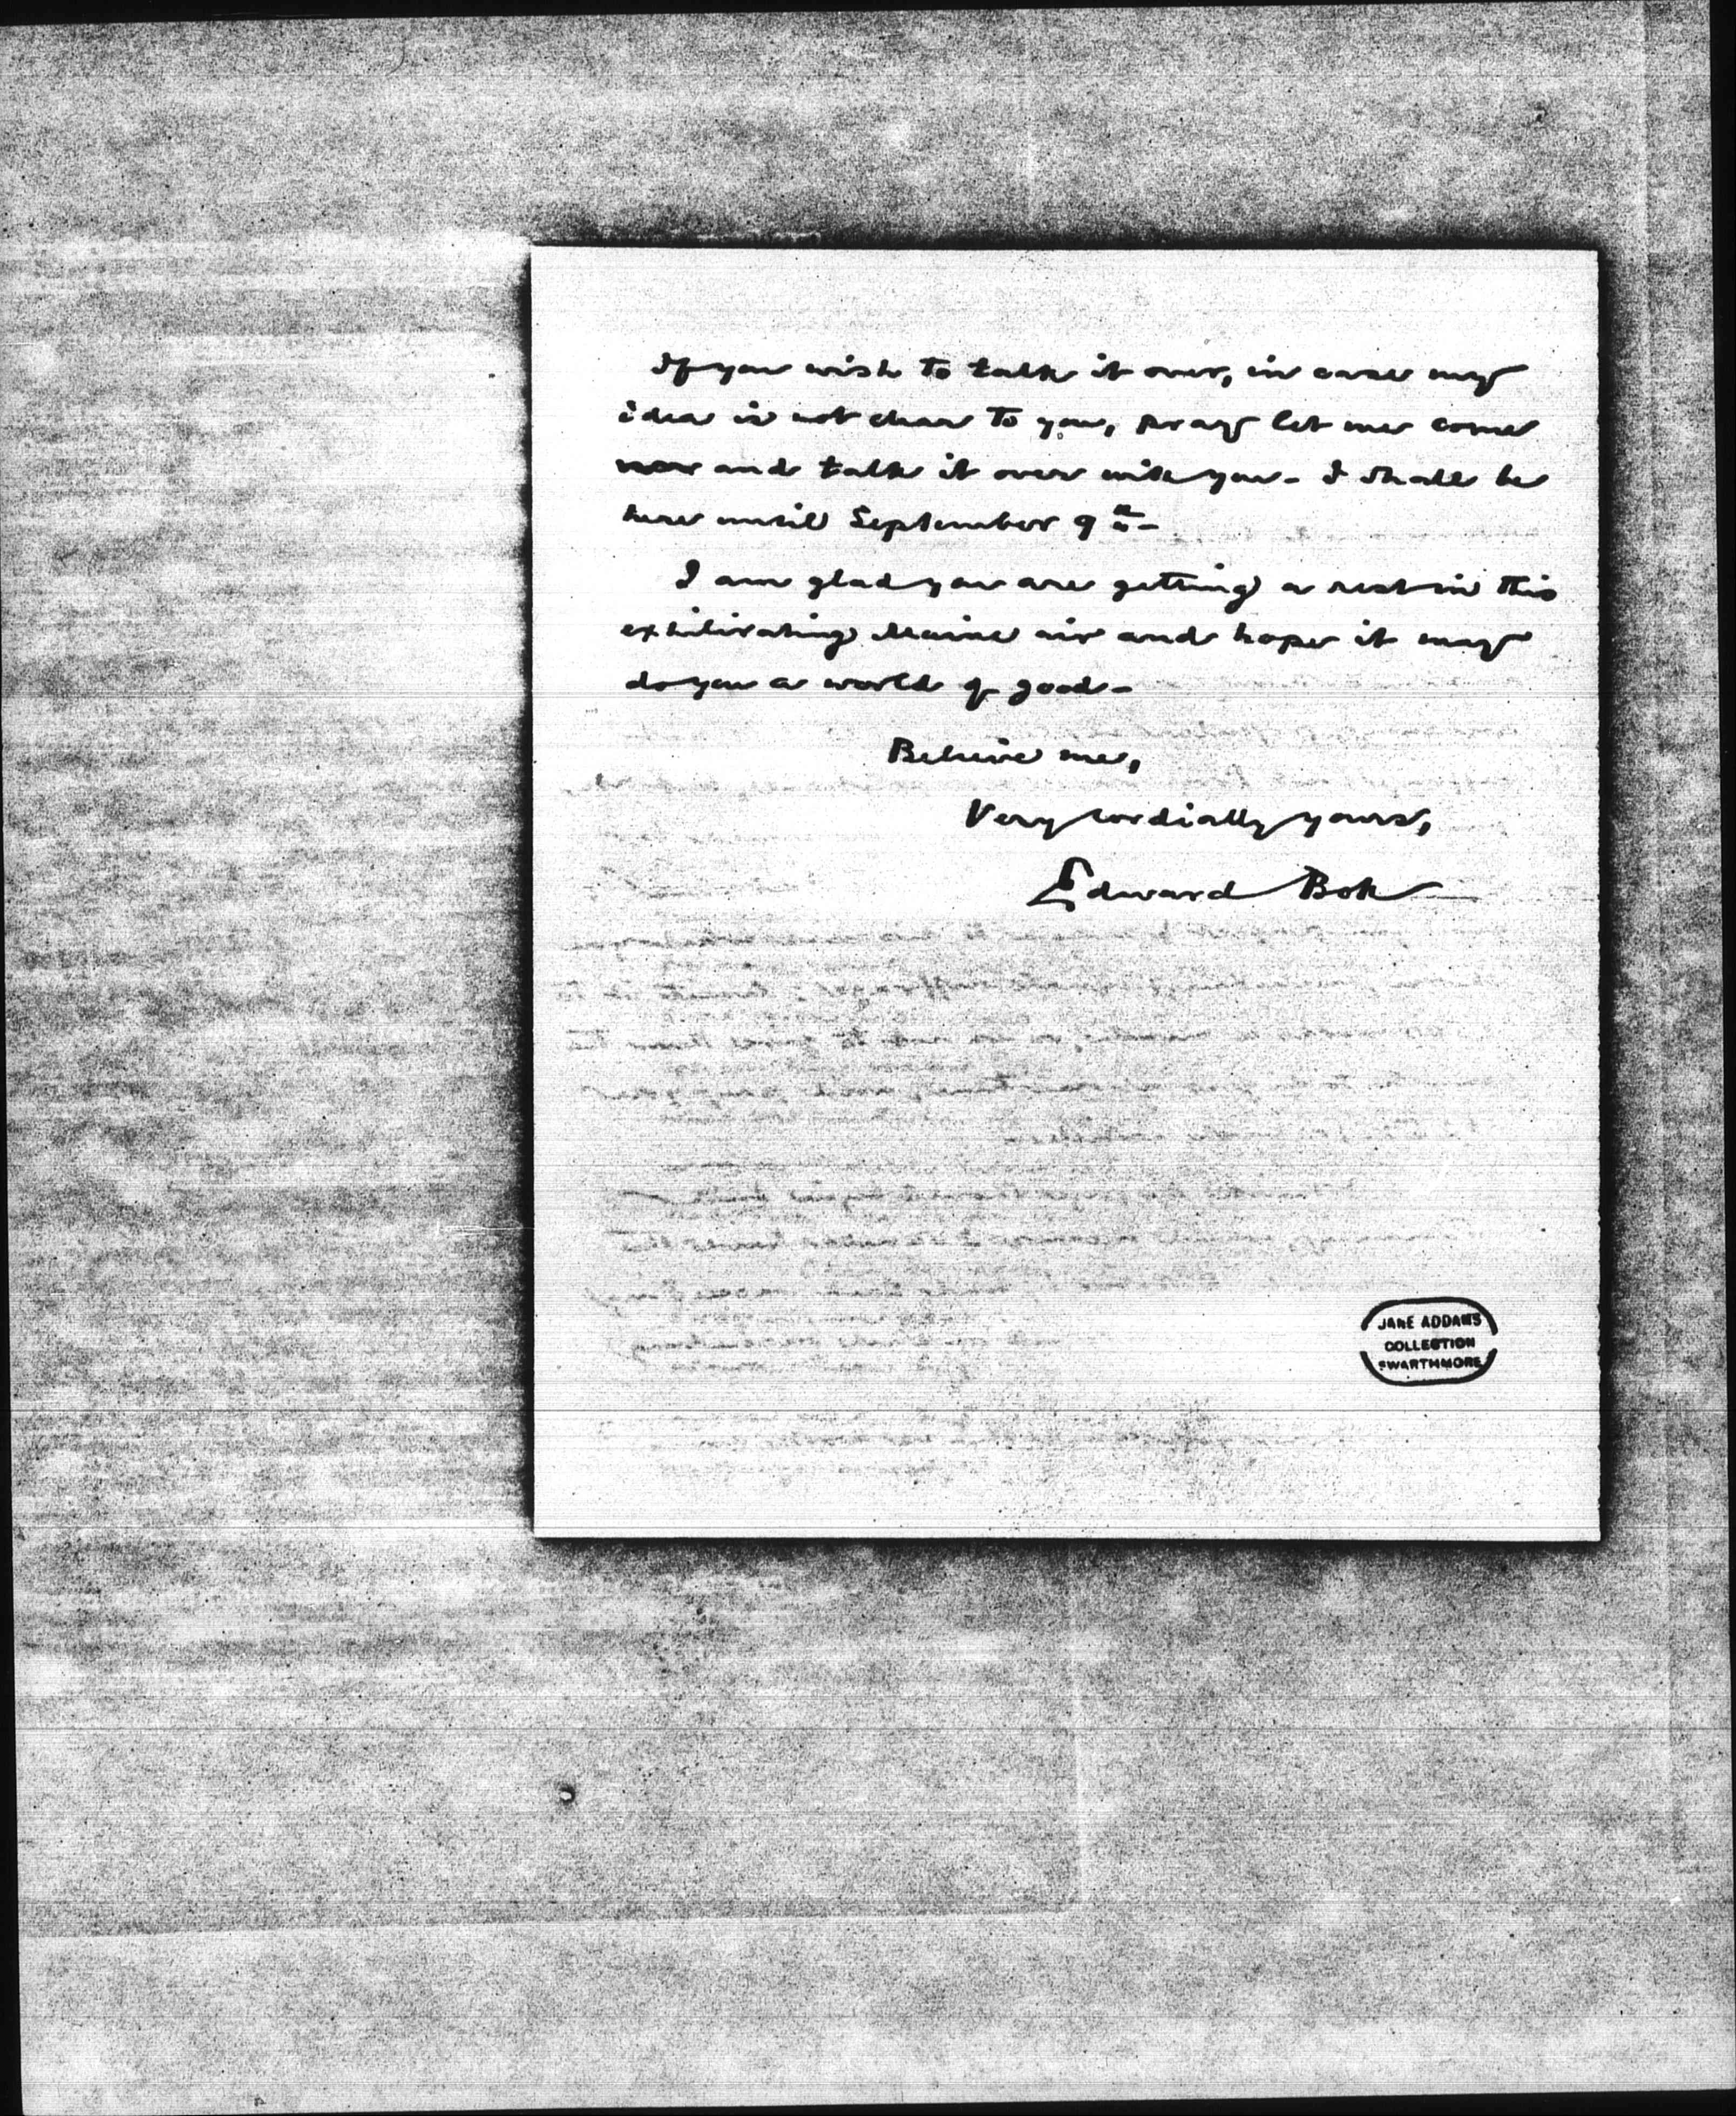 If you wish to talk it over, in case my
idea is not clear to you, pray let me come
and talk it over with you - I shall be
here until September 9th -
I am glad you are getting a rest in this
exhilirating Maine air and hope it may
do you a world of good -
Believe me,
Very cordially yours,
Edward Bok
JANE ADDAMS
COLLECTION
SWARTHMORE